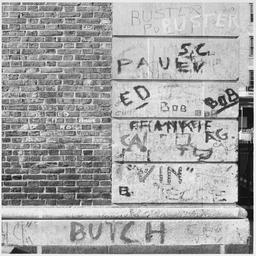 BUSTER
BUSTER
S.C.
PAUEV
ED
BOB
BOB
FRANKIE
RG.
"VIN"
B.
BUTCH